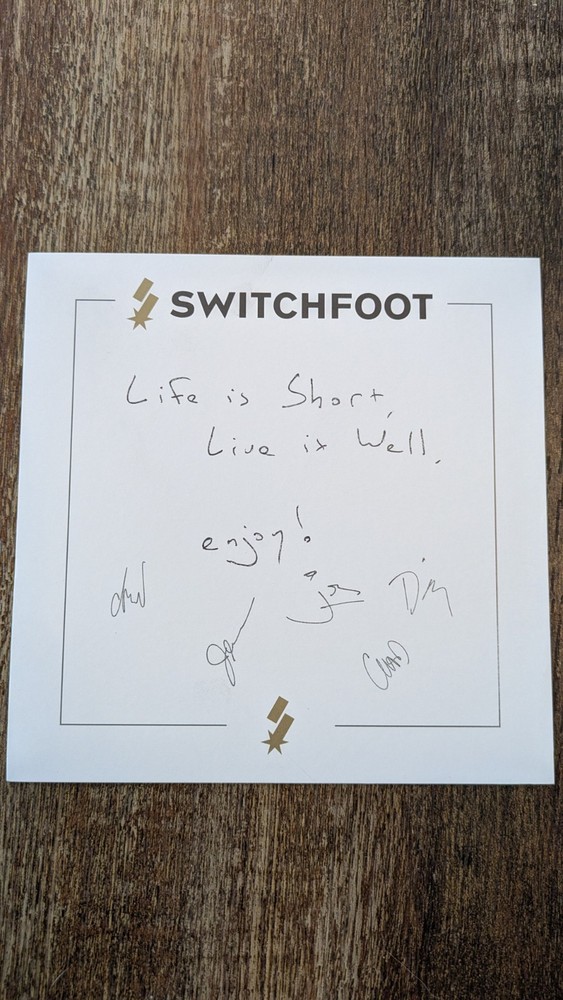 SWITCHFOOT
Life is Short,
Live it Well.
enjoy!
Drew
Jon
Chad